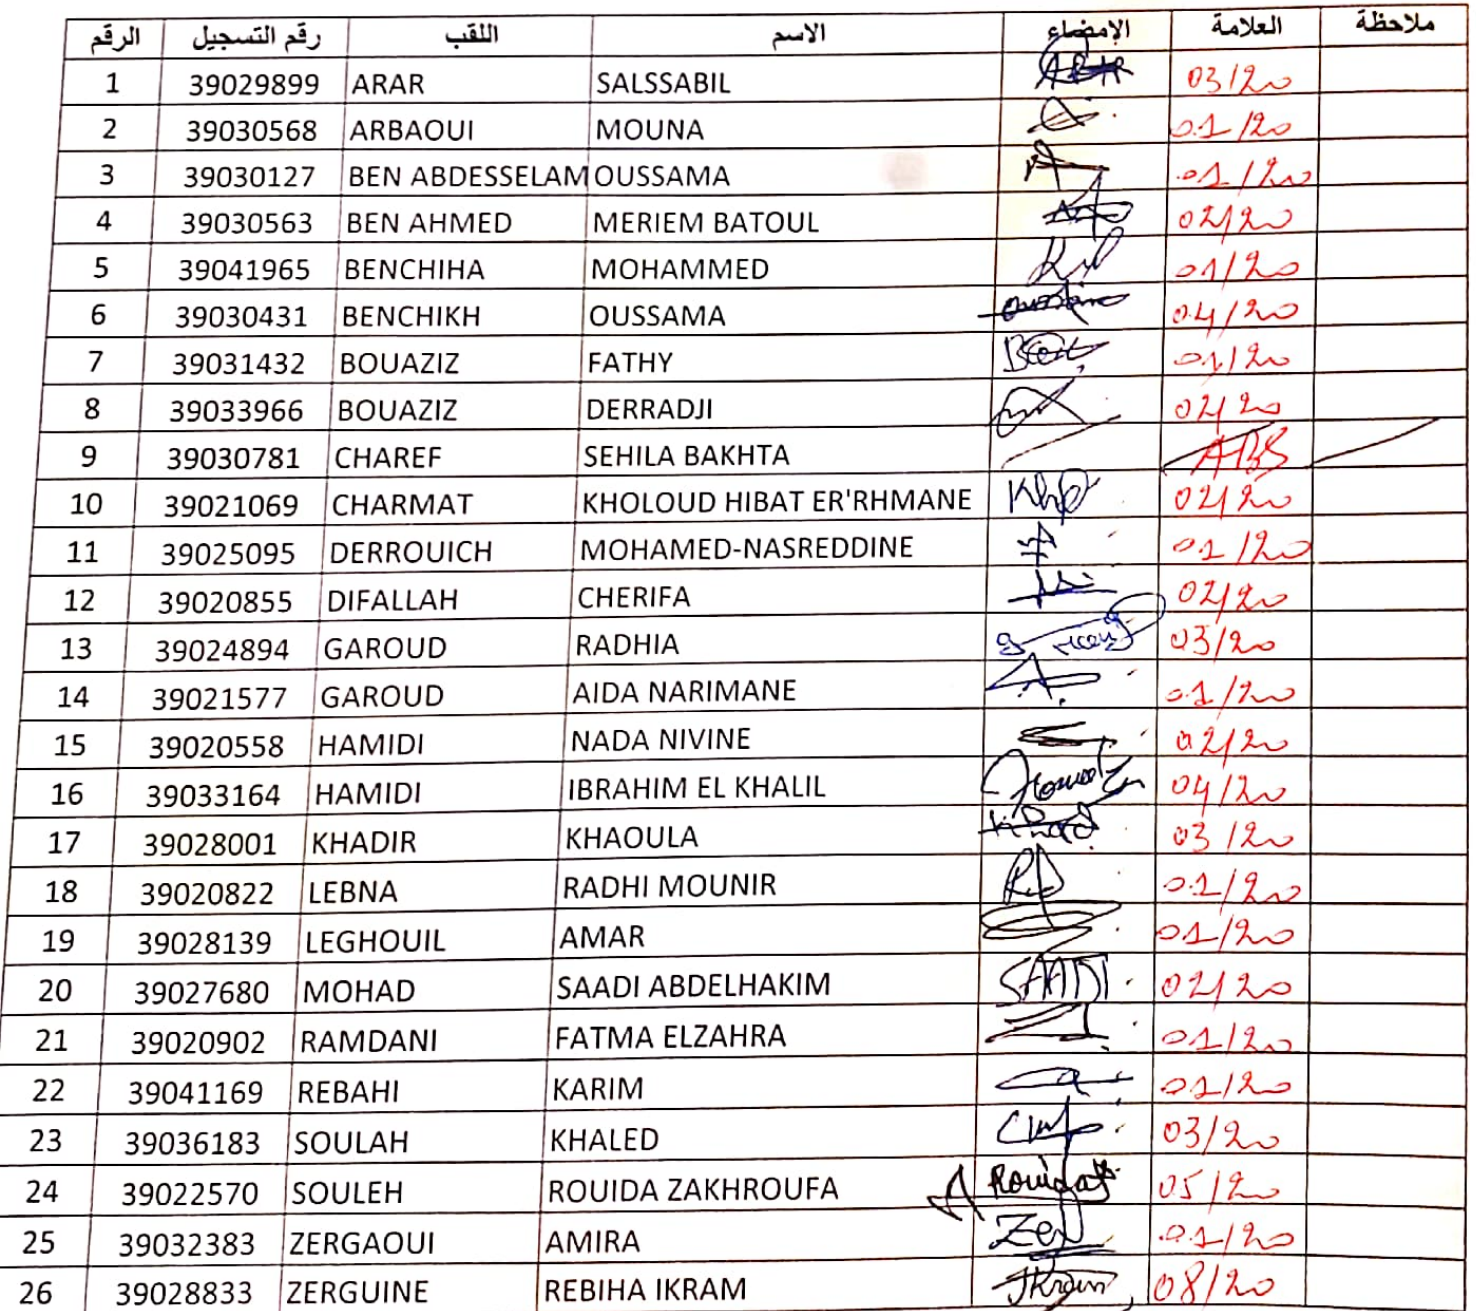 الرقم رقم التسجيل اللقب الاسم الإمضاء العلامة ملاحظة
1 39029899 ARAR SALSSABIL ARAR 03/20
2 39030568 ARBAOUI MOUNA 01/20
3 39030127 BEN ABDESSELAM OUSSAMA 01/20
4 39030563 BEN AHMED MERIEM BATOUL 02/20
5 39041965 BENCHIHA MOHAMMED 01/20
6 39030431 BENCHIKH OUSSAMA 04/20
7 39031432 BOUAZIZ FATHY 01/20
8 39033966 BOUAZIZ DERRADJI 02/20
9 39030781 CHAREF SEHILA BAKHTA ABS
10 39021069 CHARMAT KHOLOUD HIBAT ER'RHMANE 02/20
11 39025095 DERROUICH MOHAMED-NASREDDINE 01/20
12 39020855 DIFALLAH CHERIFA 02/20
13 39024894 GAROUD RADHIA 03/20
14 39021577 GAROUD AIDA NARIMANE 01/20
15 39020558 HAMIDI NADA NIVINE 02/20
16 39033164 HAMIDI IBRAHIM EL KHALIL 04/20
17 39028001 KHADIR KHAOULA 03/20
18 39020822 LEBNA RADHI MOUNIR 01/20
19 39028139 LEGHOUIL AMAR 01/20
20 39027680 MOHAD SAADI ABDELHAKIM SAADI 02/20
21 39020902 RAMDANI FATMA ELZAHRA 01/20
22 39041169 REBAHI KARIM 01/20
23 39036183 SOULAH KHALED 03/20
24 39022570 SOULEH ROUIDA ZAKHROUFA 05/20
25 39032383 ZERGAOUI AMIRA Zer 01/20
26 39028833 ZERGUINE REBIHA IKRAM Ikram 08/20